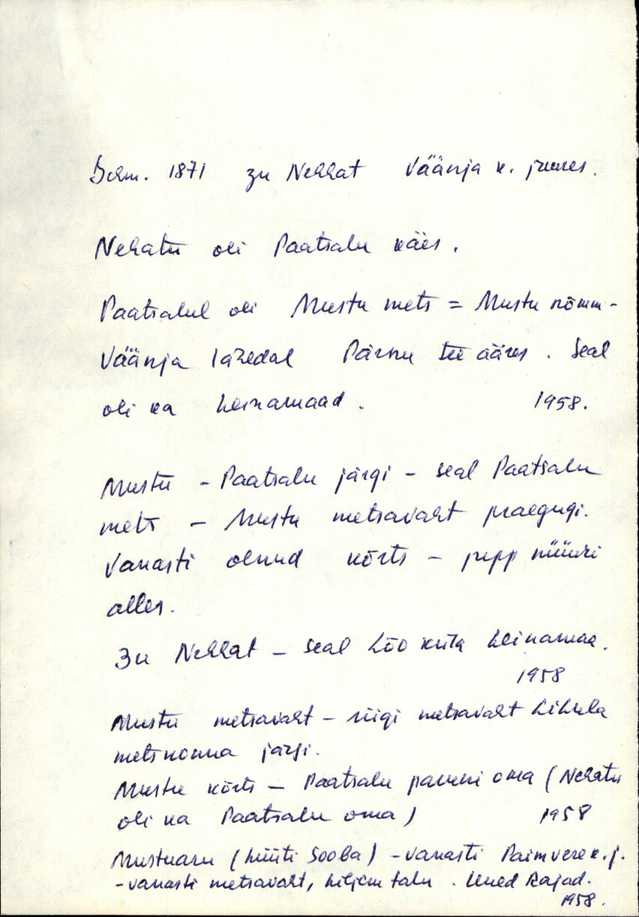 Schm. 1871 zu Nehhat Väänja k. juures.
Nehatu oli Paatsalu käes.
Paatsalul oli Mustu mets = Mustu nõmm-
Väänja lähedal Pärnu tee ääres. Seal
oli ka heinamaad. 1958.
Mustu - Paatsalu järgi - seal Paatsalu
mets - Mustu metsavaht praegugi.
Vanasti olnud kõrts - jupp müüri
alles.
Zu Nehhat - seal Lõo küla heinamaa.
1958
Mustu metsavaht - riigi metsavaht Lihula
metskonna järgi.
Mustu kõrts - Paatsalu paruni oma (Nehatu
oli ka Paatsalu oma) 1958
Mustuaru (hüüti Sooba) - vanasti Paimvere k. j.
- vanasti metsavaht, hiljem talu. Uued Rajad.
1958.